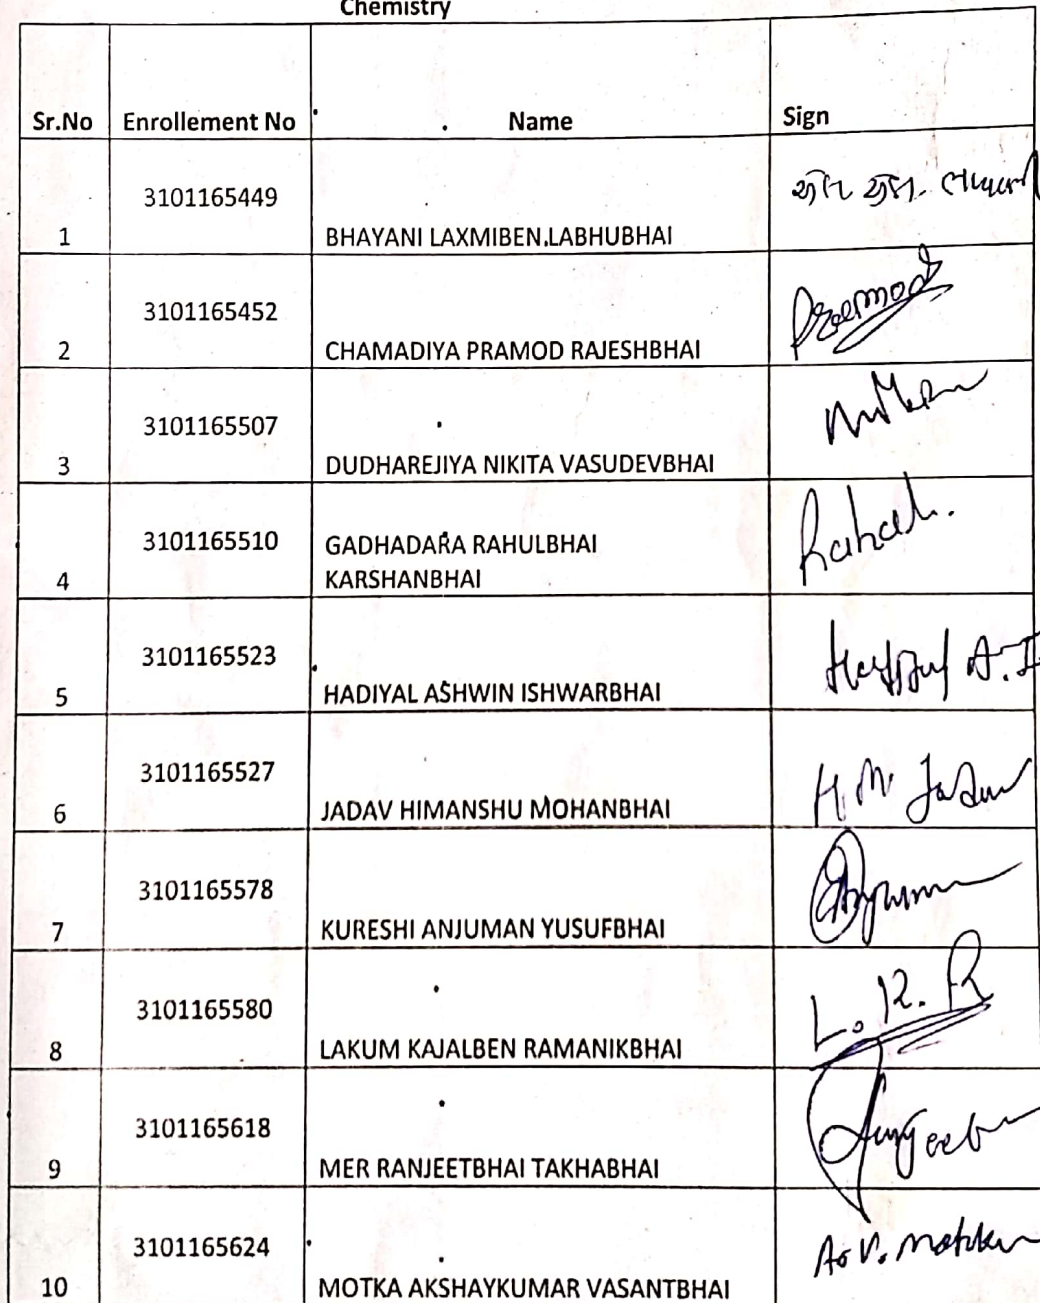 Chemistry
Sr.No Enrollement No Name Sign
3101165449
1 BHAYANI LAXMIBEN.LABHUBHAI
3101165452 Pramod
2 CHAMADIYA PRAMOD RAJESHBHAI
3101165507
3 DUDHAREJIYA NIKITA VASUDEVBHAI
3101165510 GADHADARA RAHULBHAI
4 KARSHANBHAI
3101165523
5 HADIYAL ASHWIN ISHWARBHAI
3101165527 H.M. Jadav
6 JADAV HIMANSHU MOHANBHAI
3101165578
7 KURESHI ANJUMAN YUSUFBHAI
3101165580 L. K. R
8 LAKUM KAJALBEN RAMANIKBHAI
3101165618
9 MER RANJEETBHAI TAKHABHAI
3101165624 A.V. Motka
10 MOTKA AKSHAYKUMAR VASANTBHAI